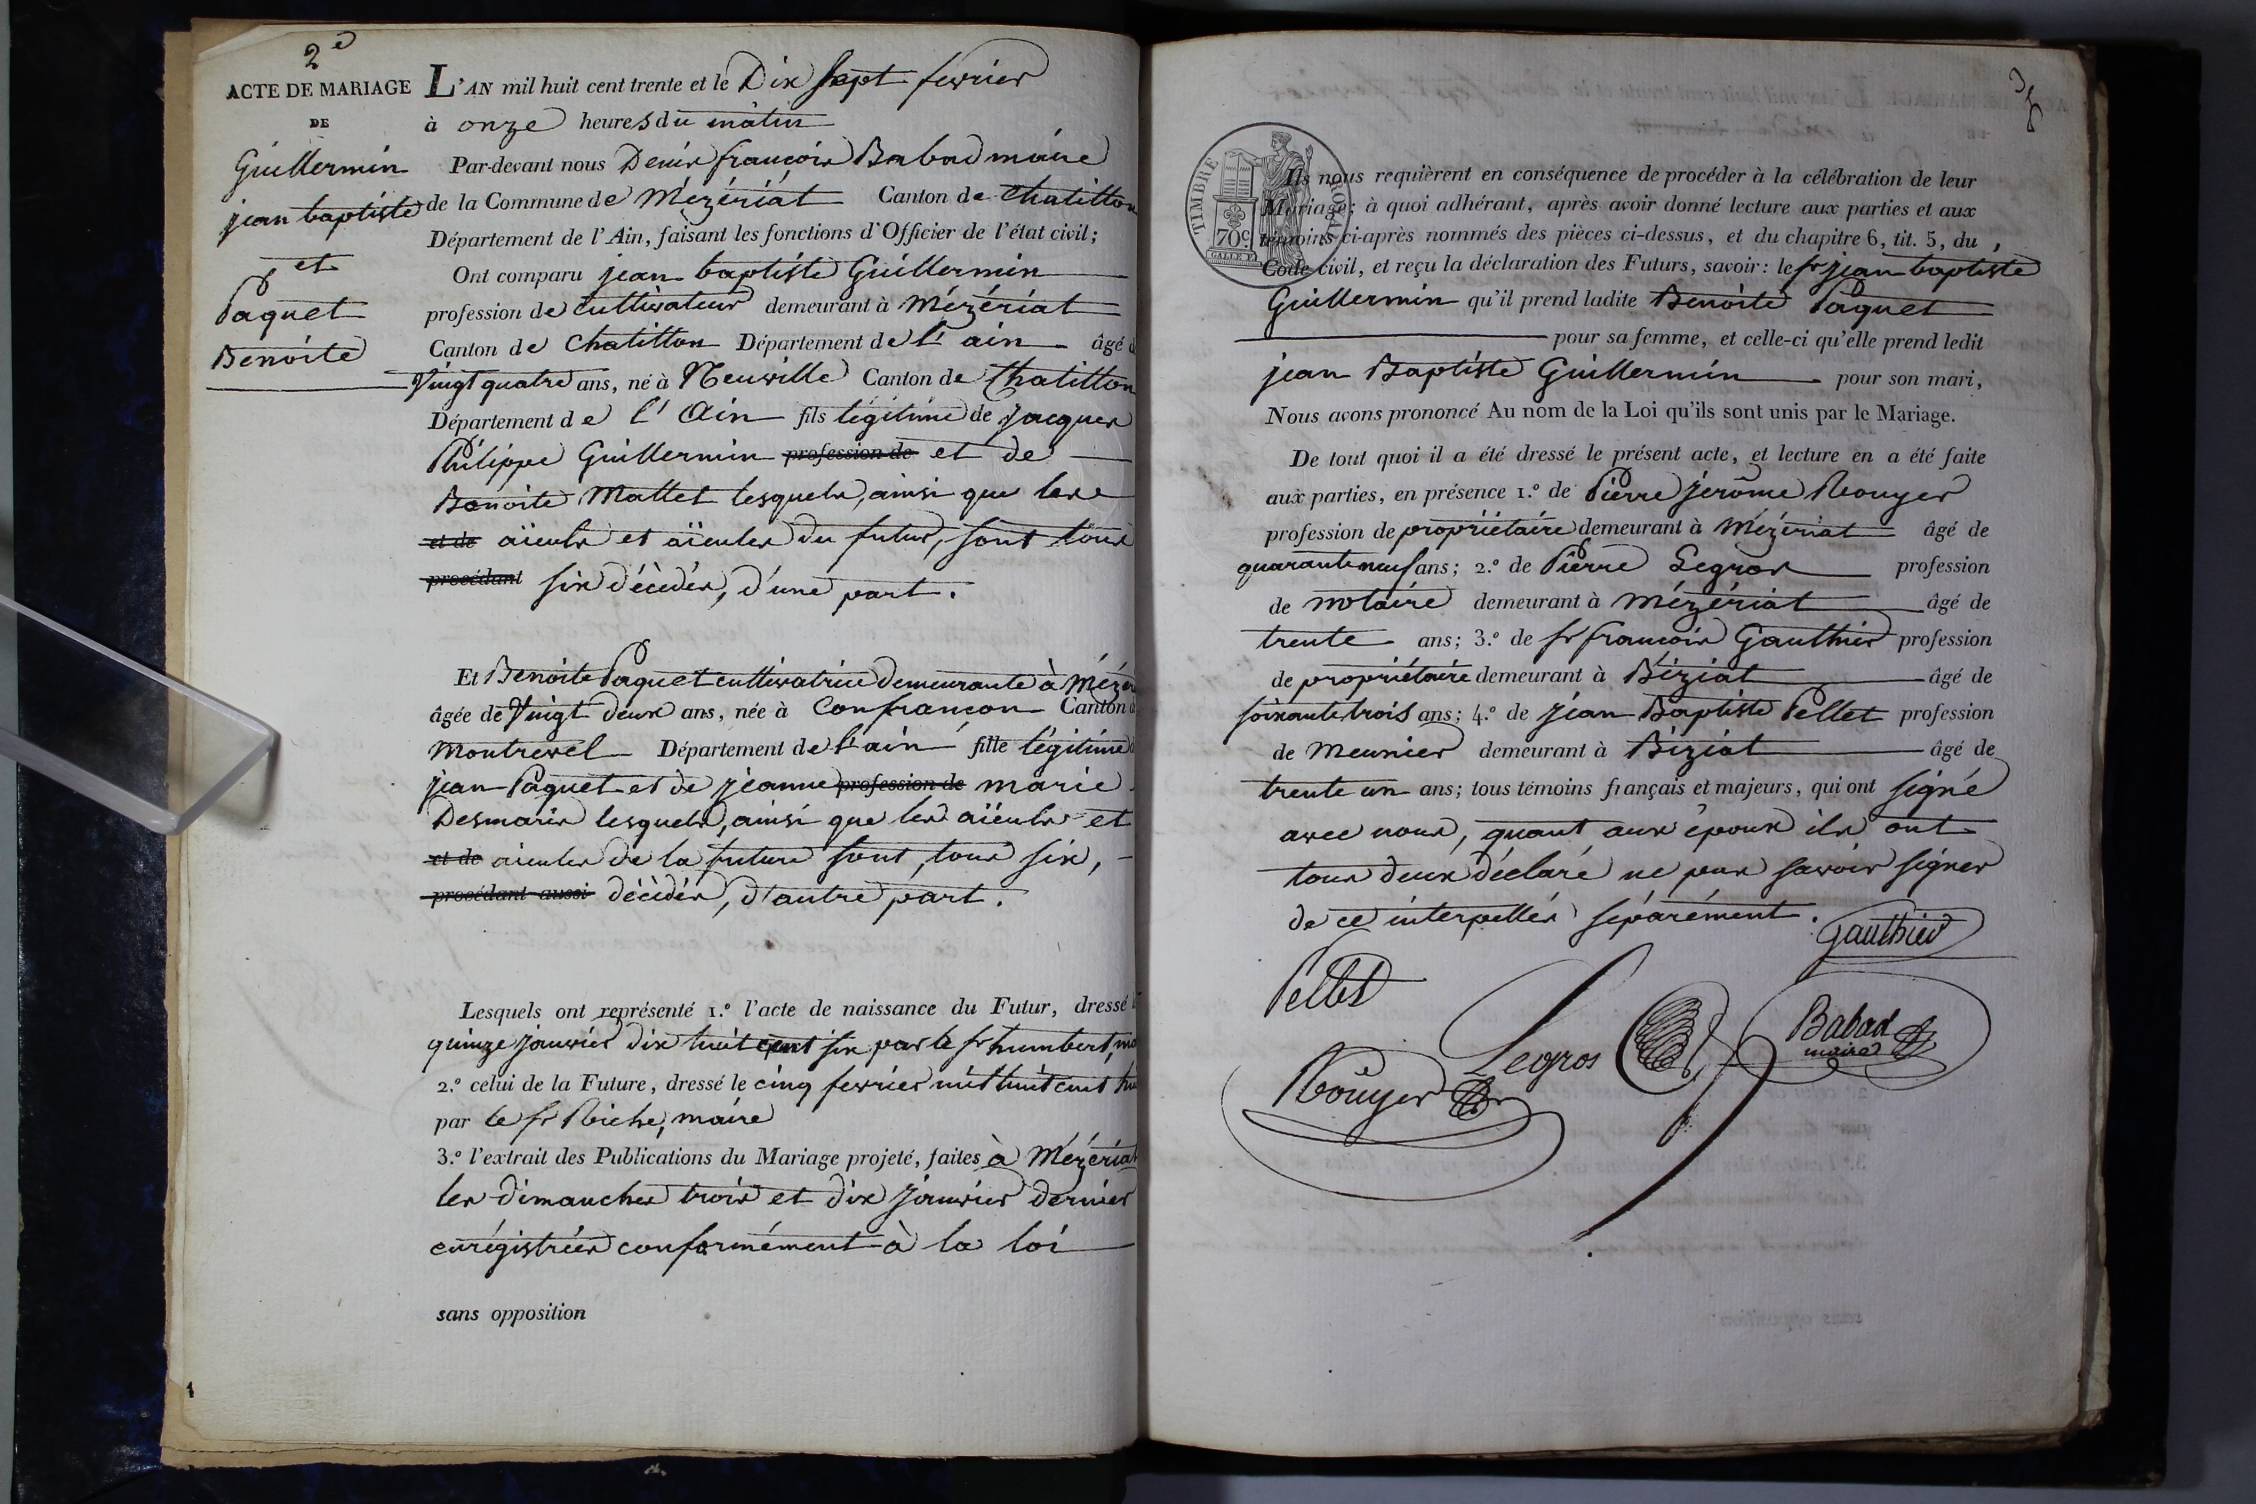 2e
ACTE DE MARIAGE
DE
Guillermin
jean baptiste
et
Paquet
Benoite
L'AN mil huit cent trente et le Dix sept fevrier
à onze heures du matin
Par-devant nous Denis françois Babad maire
de la Commune de Mézériat Canton de Chatillon
Département de l'Ain, faisant les fonctions d'Officier de l'état civil;
Ont comparu jean baptiste Guillermin
profession de Cultivateur demeurant à Mézériat
Canton de Chatillon Département de l'ain âgé
Vingt quatre ans, né à Neuville Canton de Chatillon
Département de l'Ain fils légitime de Jacques
Philippe Guillermin profession de et de
Benoite Mallet lesquels, ainsi que les
et de aïeuls et aïeules du futur, sont tous
procédant six décédés, d'une part.
Et Benoite Paquet cultivatrice demeurante à Mézér
âgée de Vingt deux ans, née à Confrancon Canton
Montrevel Département de l'ain fille légitime
jean Paquet et de jeanne profession de marie
Desmaris lesquels, ainsi que les aïeuls et
et de aieules de la future sont, tous six,
procédant aussi décédés, d'autre part.
Lesquels ont représenté 1.º l'acte de naissance du Futur, dressé
quinze janvier dix huit cent six par le sr humbert,
2.º celui de la Future, dressé le cinq fevrier mil huit cent
par le sr Riche, maire
3.º l'extrait des Publications du Mariage projeté, faites à Mézériat
les dimanches trois et dix janvier dernier
enrégistrées conformément à la loi
sans opposition
TIMBRE ROYAL
70c
Ils nous requièrent en conséquence de procéder à la célébration de leur
Mariage; à quoi adhérant, après avoir donné lecture aux parties et aux
témoins ci-après nommés des pièces ci-dessus, et du chapitre 6, tit. 5, du
Code civil, et reçu la déclaration des Futurs, savoir: le sr jean baptiste
Guillermin qu'il prend ladite Benoite Paquet
pour sa femme, et celle-ci qu'elle prend ledit
jean Baptiste Guillermin pour son mari,
Nous avons prononcé Au nom de la Loi qu'ils sont unis par le Mariage.
De tout quoi il a été dressé le présent acte, et lecture en a été faite
aux parties, en présence 1.º de Pierre jerôme Rouyer
profession de propriétaire demeurant à Mézériat âgé de
quarante neuf ans; 2.º de Pierre Legros profession
de notaire demeurant à Mézériat âgé de
trente ans; 3.º de sr francois Gauthier profession
de propriétaire demeurant à Biziat âgé de
soixante trois ans; 4.º de jean Baptiste Pellet profession
de Meunier demeurant à Biziat âgé de
trente un ans; tous témoins français et majeurs, qui ont signé
avec nous, quant aux époux ils ont
tous deux déclaré ne pas savoir signer
de ce interpellés séparément.
Gauthier
Pellet
Legros
Babad
maire
Rouyer